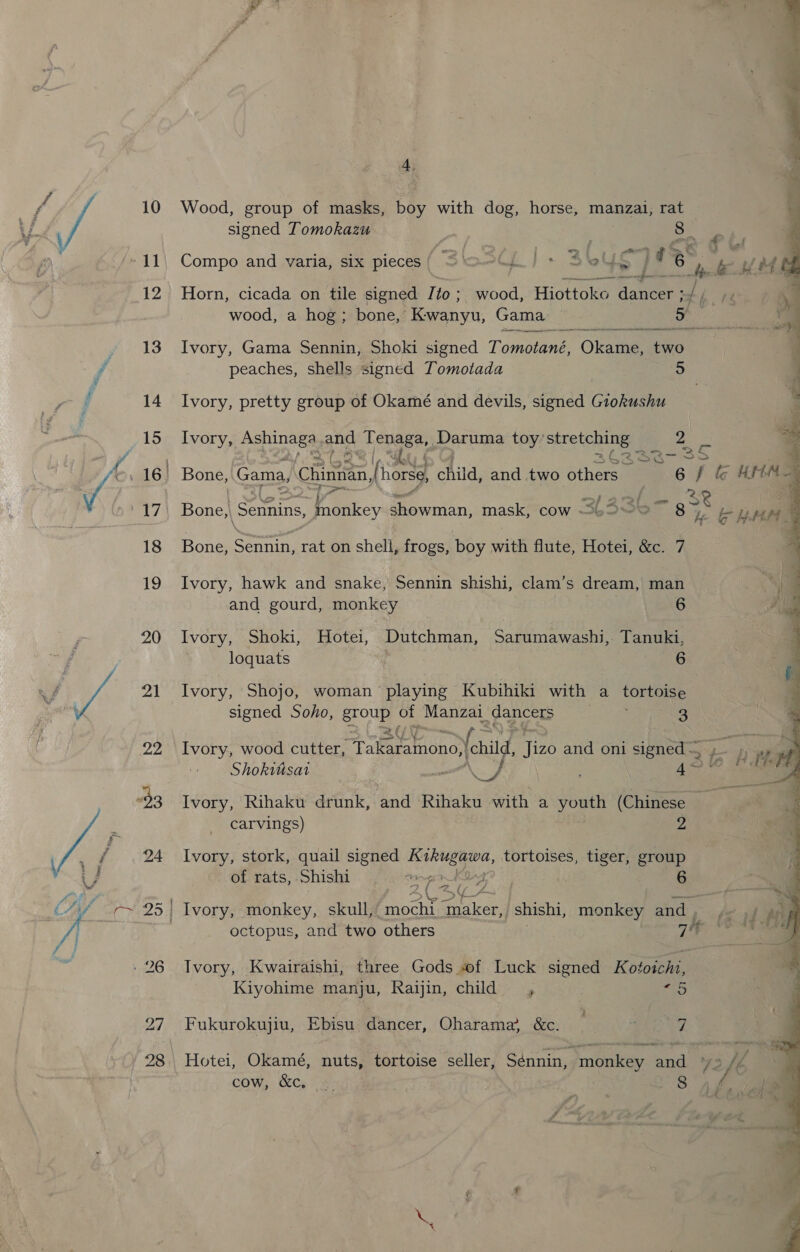 4
10 Wood, group of masks, boy with dog, horse, manzai, rat
signed Tomokazu 8
11 Compo and varia, six pieces 6
12 Horn, cicada on tile signed Ito; wood, Hiottoko dancer;
wood, a hog; bone, Kwanyu, Gama 5
13 Ivory, Gama Sennin, Shoki signed Tomotané, Okame, two
peaches, shells signed Tomotada 5
14 Ivory, pretty group of Okamé and devils, signed Giokushu
15 Ivory, Ashinaga and Tenaga, Daruma toy stretching 2
16 Bone, Gama, Chinnan, horse, child, and two others 6
17 Bone, Sennins, monkey showman, mask, cow 8
18 Bone, Sennin, rat on shell, frogs, boy with flute, Hotei, &c. 7
19 Ivory, hawk and snake, Sennin shishi, clam's dream, man
and gourd, monkey 6
20 Ivory, Shoki, Hotei, Dutchman, Sarumawashi, Tanuki,
loquats 6
21 Ivory, Shojo, woman playing Kubihiki with a tortoise
signed Soho, group of Manzai dancers 3
22 Ivory, wood cutter, Takaramono, child, Jizo and oni signed
Shokiusai 4
23 Ivory, Rihaku drunk, and Rihaku with a youth (Chinese
carvings) 2
24 Ivory, stork, quail signed Kikugawa, tortoises, tiger, group
of rats, Shishi 6
25 Ivory, monkey, skull, mochi maker, shishi, monkey and
octopus, and two others 7
26 Ivory, Kwairaishi, three Gods of Luck signed Kotoichi,
Kiyohime manju, Raijin, child 5
27 Fukurokujiu, Ebisu dancer, Oharama, &c. 7
28 Hotei, Okamé, nuts, tortoise seller, Sennin, monkey and
cow, &c. 8